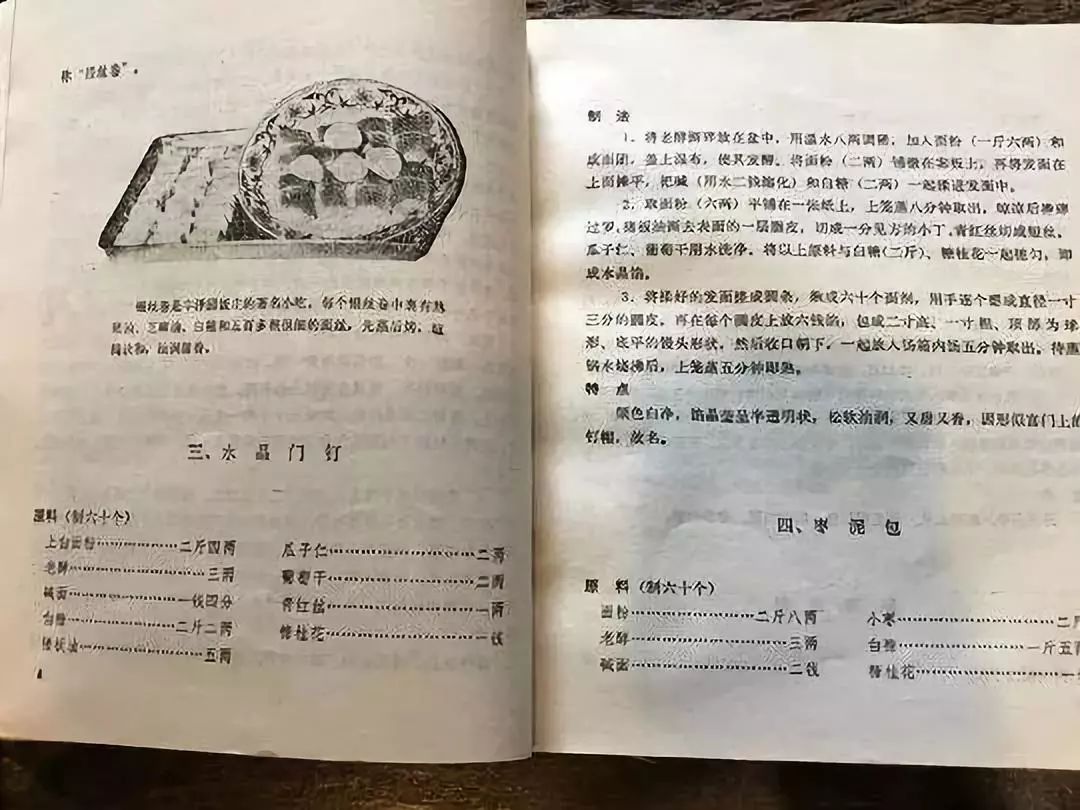 称“银丝卷”。
银丝卷是丰泽园饭庄的著名小吃。每个银丝卷中裹有熟
猪油、芝麻油、白糖和五百多根很细的面丝，先蒸后烤，
三、水晶门钉
原料（制六十个）
上白面粉……………………二斤四两
老酵……………………三两
碱面……………………一钱四分
白糖……………………二斤二两
猪板油……………………五两
瓜子仁……………………二两
葡萄干……………………二两
青红丝……………………一两
糖桂花……………………一钱
4
制 法
1．将老酵撕碎放在盆中，用温水八两调稀，加入面粉（一斤六两）和
成面团，盖上湿布，使其发酵。将面粉（二两）铺撒在案板上，再将发面在
上面摊平，把碱（用水二钱溶化）和白糖（二两）一起揉进发面中。
2．取面粉（六两）平铺在一张纸上，上笼蒸八分钟取出，晾凉后
过罗。猪板油撕去表面的一层脂皮，切成一分见方的小丁。青红丝切成短丝，
瓜子仁、葡萄干用水洗净。将以上原料与白糖（二斤）、糖桂花一起搓匀，即
成水晶馅。
3．将揉好的发面搓成圆条，揪成六十个面剂，用手逐个摁成直径一寸
三分的圆皮。再在每个圆皮上放六钱馅，包成二寸高、一寸粗、顶部为球
形、底平的馒头形状。然后收口朝下，一起放入饧箱内饧五分钟取出。待蒸
锅水烧沸后，上笼蒸五分钟即熟。
特 点
颜色白净，馅晶莹呈半透明状，松软油润，又甜又香，因形似宫门上的
钉帽，故名。
四、枣泥包
原 料（制六十个）
面粉……………………二斤八两
老酵……………………三两
碱面……………………二钱
小枣……………………二斤
白糖……………………一斤五两
糖桂花……………………一